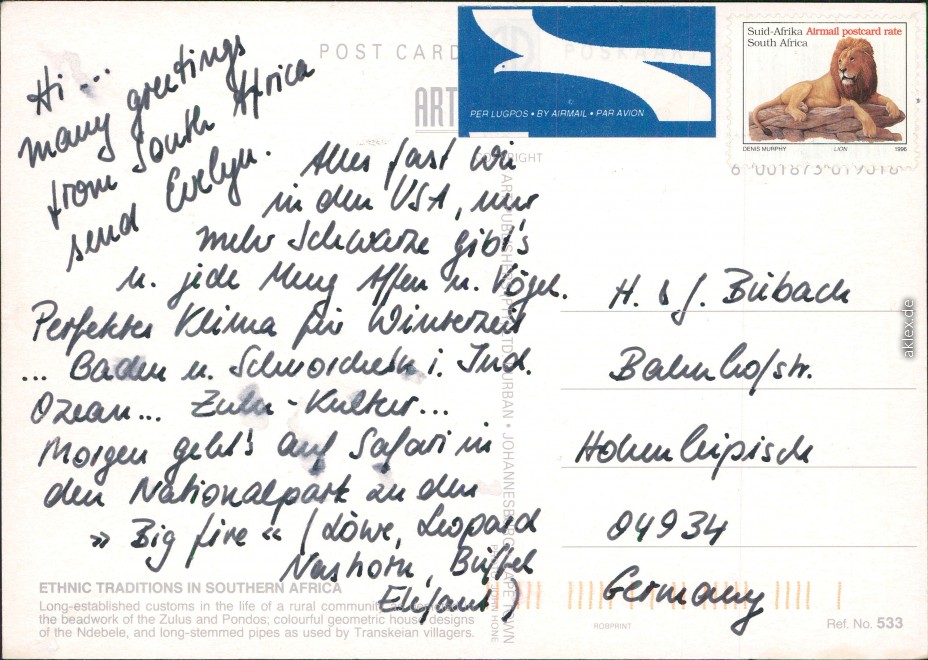 POST CARD
POSKAART
ART
PER LUGPOS • BY AIRMAIL • PAR AVION
Suid-Afrika Airmail postcard rate
South Africa
DENIS MURPHY LION 1998
6 001873 019318
Hi...
many greetings
from South Africa
send Evelyn.
Alles fast wie
in den USA, nur
mehr Schwarze gibt's
u. jede Meng Affen u. Vögel.
Perfektes Klima für Winterzeit
... Baden u. Schnorcheln i. Ind.
Ozean... Zulu-Kultur...
Morgen geht's auf Safari in
den Nationalpark zu den
» Big five « (Löwe, Leopard
Nashorn, Büffel
Elefant)
H. & J. Bubach
Bahnhofstr.
Hohenleipisch
04934
Germany
ETHNIC TRADITIONS IN SOUTHERN AFRICA
Long-established customs in the life of a rural community
the beadwork of the Zulus and Pondos; colourful geometric house designs
of the Ndebele, and long-stemmed pipes as used by Transkeian villagers.
ROBPRINT
Ref. No. 533
aklex.de